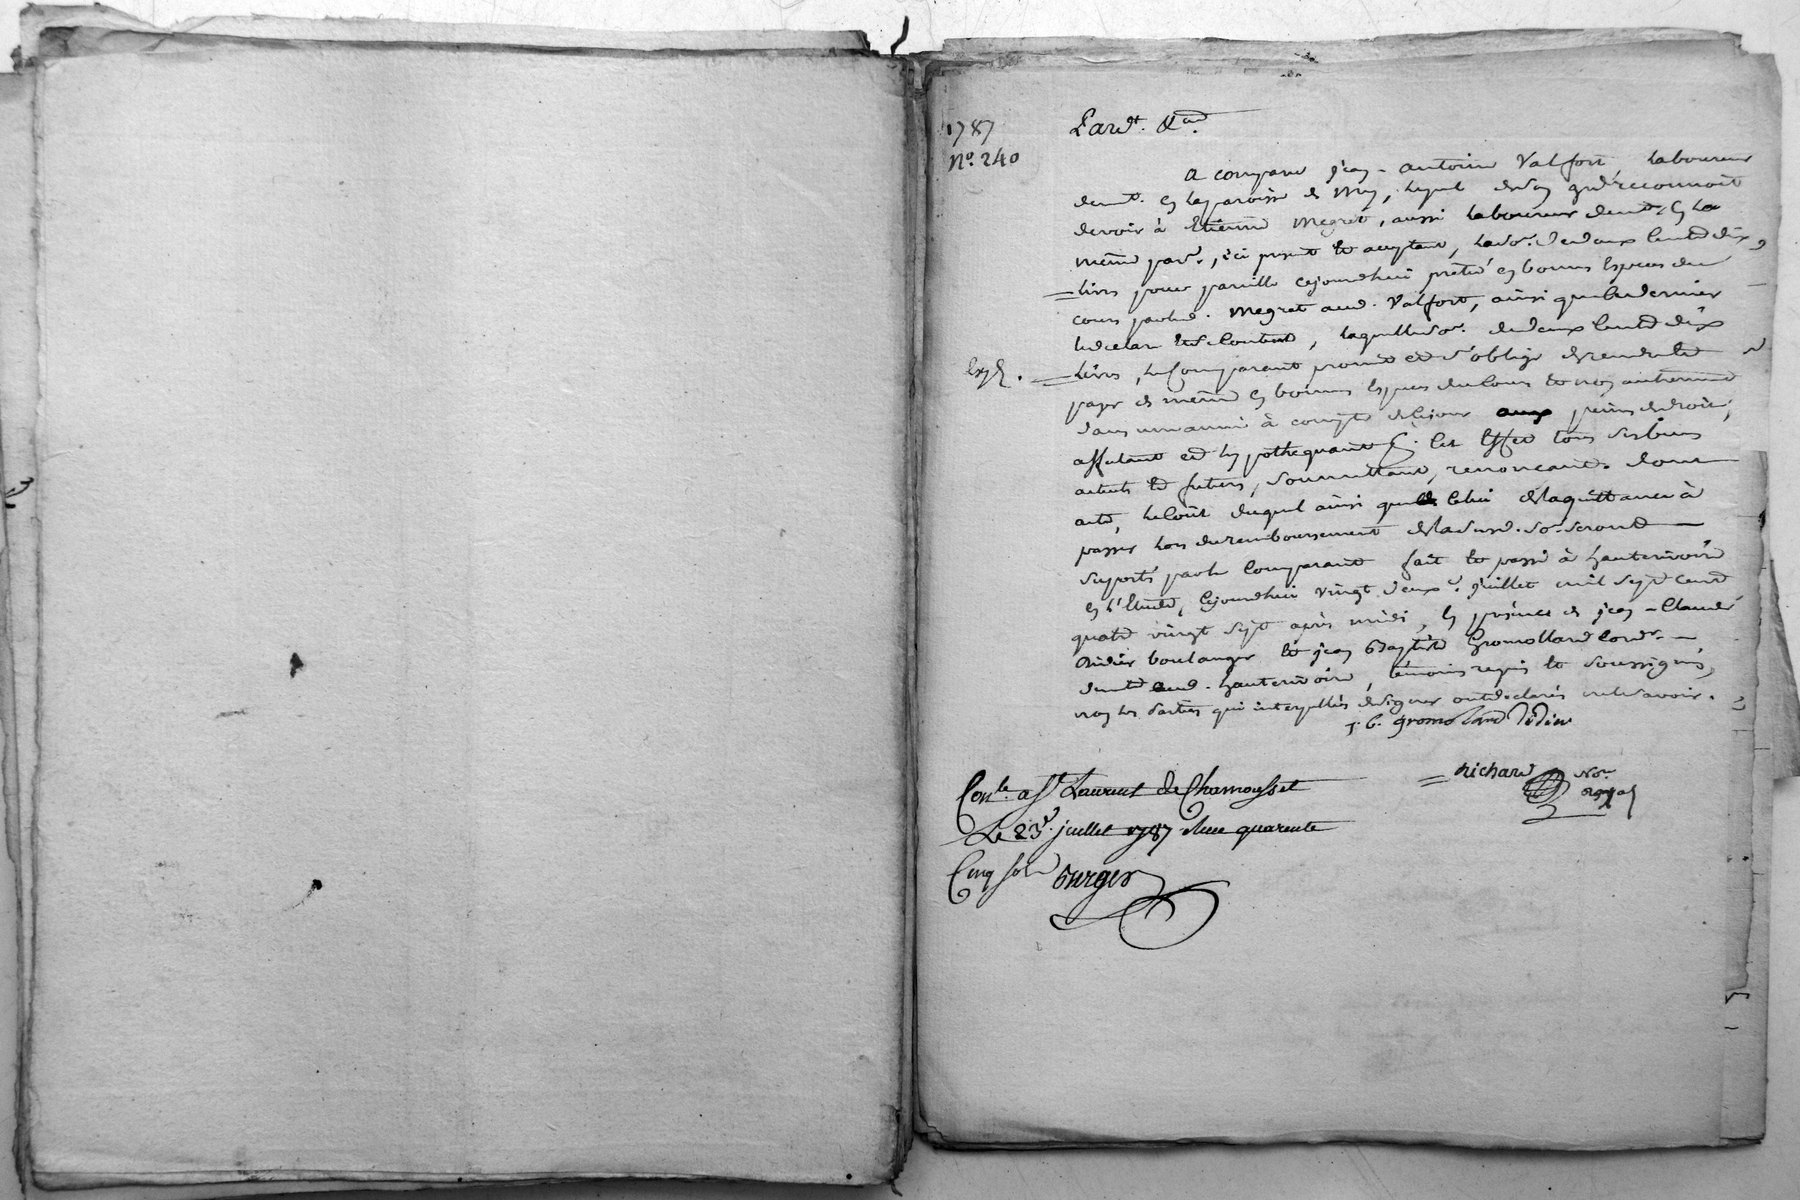 1787
N.º 240
Pard.t &.a
a comparu jean-antoine Valfort laboureur
demt. en la paroisse de Mey, lequel de son gré reconnoit
devoir à Etienne Megret, aussi laboureur demt. en la
même parse., ici present et acceptant, la so.e de deux cents dix
livres pour pareille cejourdhui prêtée en bonnes Especes du
cours par led. Megret aud. Valfort, ainsi que ce dernier
le declare et s'contente, laquelle so.e de deux cents dix
Exp.
livres, le Comparant promet et s'oblige de rendre et
payer de même en bonnes Especes du Cours et non autrement
dans une année à compter de ce jour aux peines de droit,
affectant et hypothequant pr. cet Effet tous ses biens
actuels et futurs, soumettant, renonceant. dont
acte, le Coût duquel ainsi que de Celui de la quittance à
passer lors du remboursement de la susd. so.e seront
suportés par le Comparant fait et passé à hauterivoire
en l'Etude, cejourdhui vingt deux e. juillet mil sept cent
quatre vingt sept après midi, en présence de jean-Claude
Didier boulanger et jean Baptiste Gromolland Cord.r
demts. aud. hauterivoire, témoins requis et soussignés,
non les parties qui interpellées de signer ont declarés ne le savoir.
J. B. gromolland Didier
richard No.re royal
Con.le a St. Laurent de Chamousset
Le 23.e juillet 1787 Reçu quarente
Cinq sols Burger